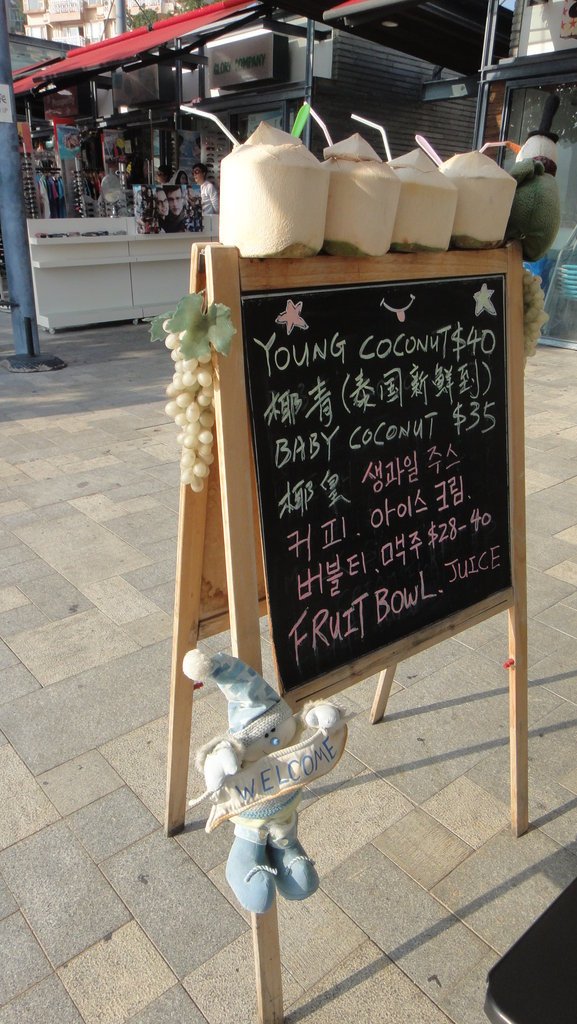 GLORY COMPANY
YOUNG COCONUT $40
椰青 (泰国新鲜到)
BABY COCONUT $35
椰皇 생과일 주스
커피. 아이스 크림.
버블티. 맥주 $28-40
FRUIT BOWL. JUICE
WELCOME